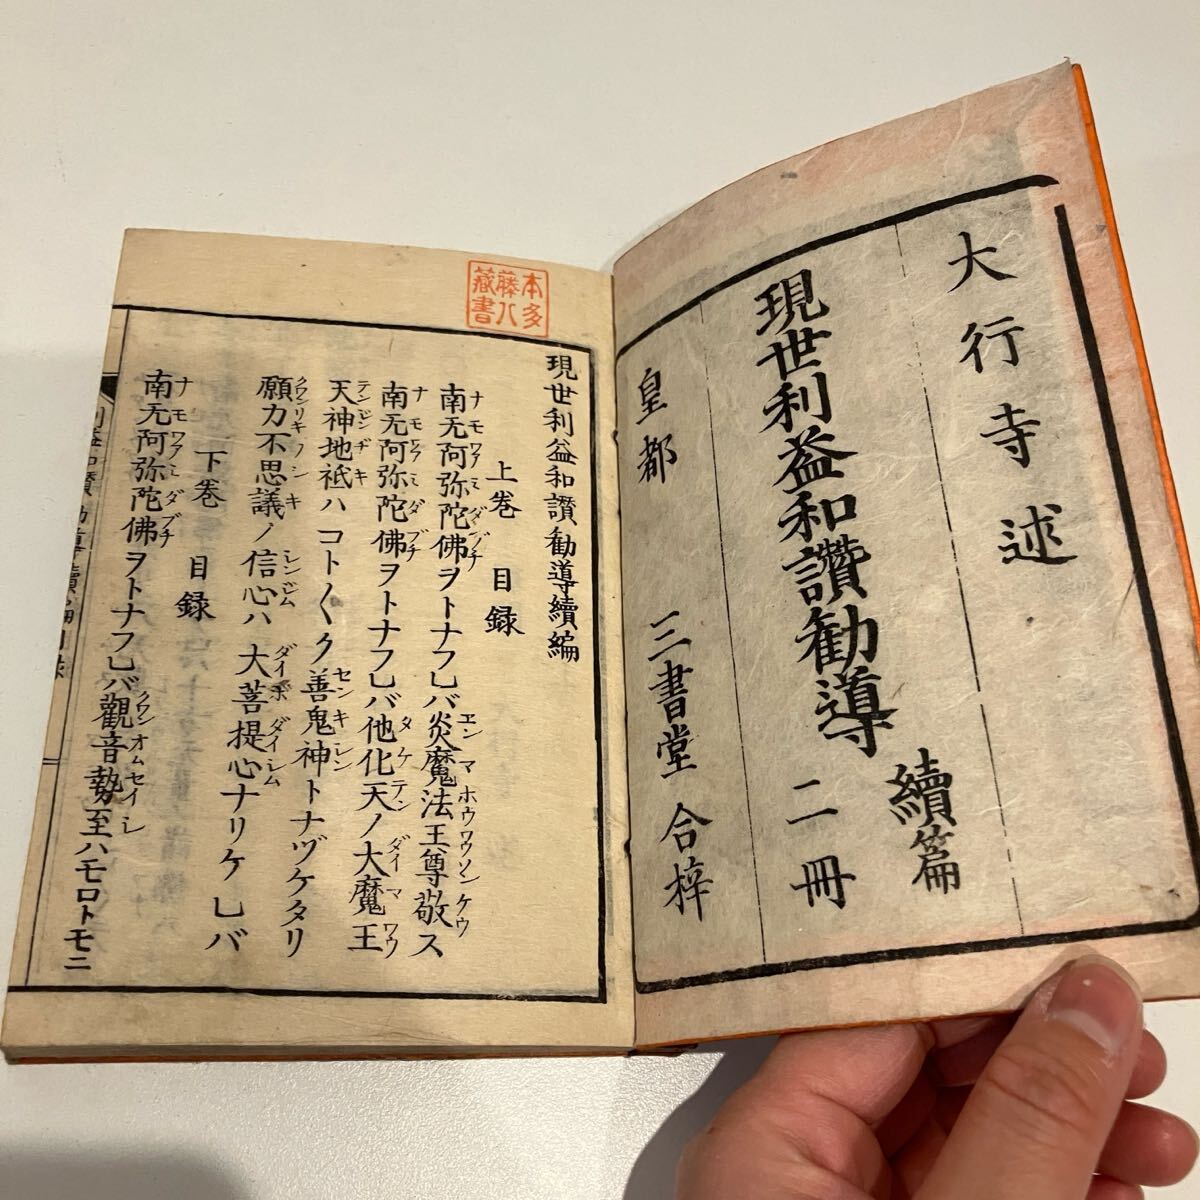 大行寺述
現世利益和讚勸導 續篇 二冊
皇都 三書堂 合梓
本多
藤八
藏書
現世利益和讚勸導續編
上巻 目録
南无阿弥陀佛ヲトナフレバ炎魔法王尊敬ス
南无阿弥陀佛ヲトナフレバ他化天ノ大魔王
天神地祇ハコト〱ク善鬼神トナヅケタリ
願力不思議ノ信心ハ大菩提心ナリケレバ
下巻 目録
南无阿弥陀佛ヲトナフレバ觀音勢至ハモロトモニ